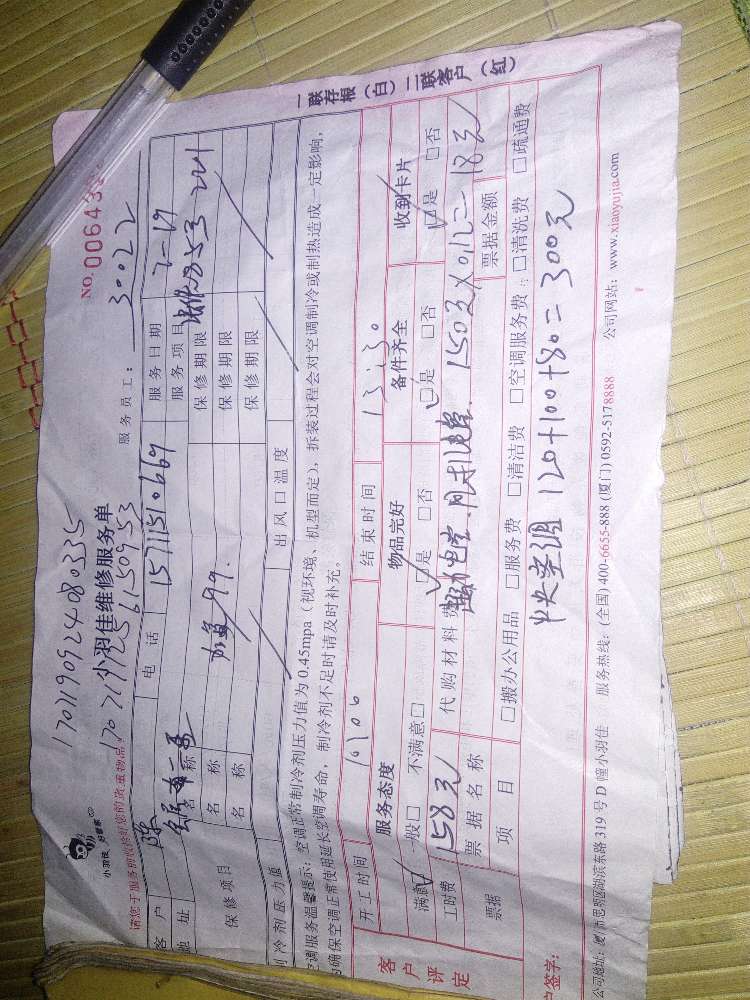 一联存根（白）二联客户（红）
NO.00643
170719092480335
30022
小羽佳 好管家
小羽佳维修服务单
服务员工：
请您于服务前收拾好您的贵重物品。
客户 陈 电话 15711510669 服务日期 7-19
地址 服务项目
保修项目 名称 加氟99. 保修期限
名称 保修期限
名称 保修期限
制冷剂压力值 出风口温度
空调服务温馨提示：空调正常制冷剂压力值为0.45mpa（视环境、机型而定），拆装过程会对空调制冷或制热造成一定影响，
为确保空调正常使用延长空调寿命，制冷剂不足时请及时补充。
开工时间 结束时间 13:30
客户评定 服务态度 物品完好 备件齐全 收到卡片
满意☑ 一般□ 不满意□ ☑是 □否 ☑是 □否 ☑是 □否
工时费 158元 代购材料费 150元×0.12=18元
票据 票据名称 票据金额
项目 □搬办公用品 □服务费 □清洁费 □空调服务费 □清洗费 □疏通费
中央空调 120+100+80=300元
户签字：
公司地址：厦门市思明区湖滨东路319号D幢小羽佳 服务热线：(全国) 400-6655-888 (厦门) 0592-5178888 公司网站：www.xiaoyujia.com